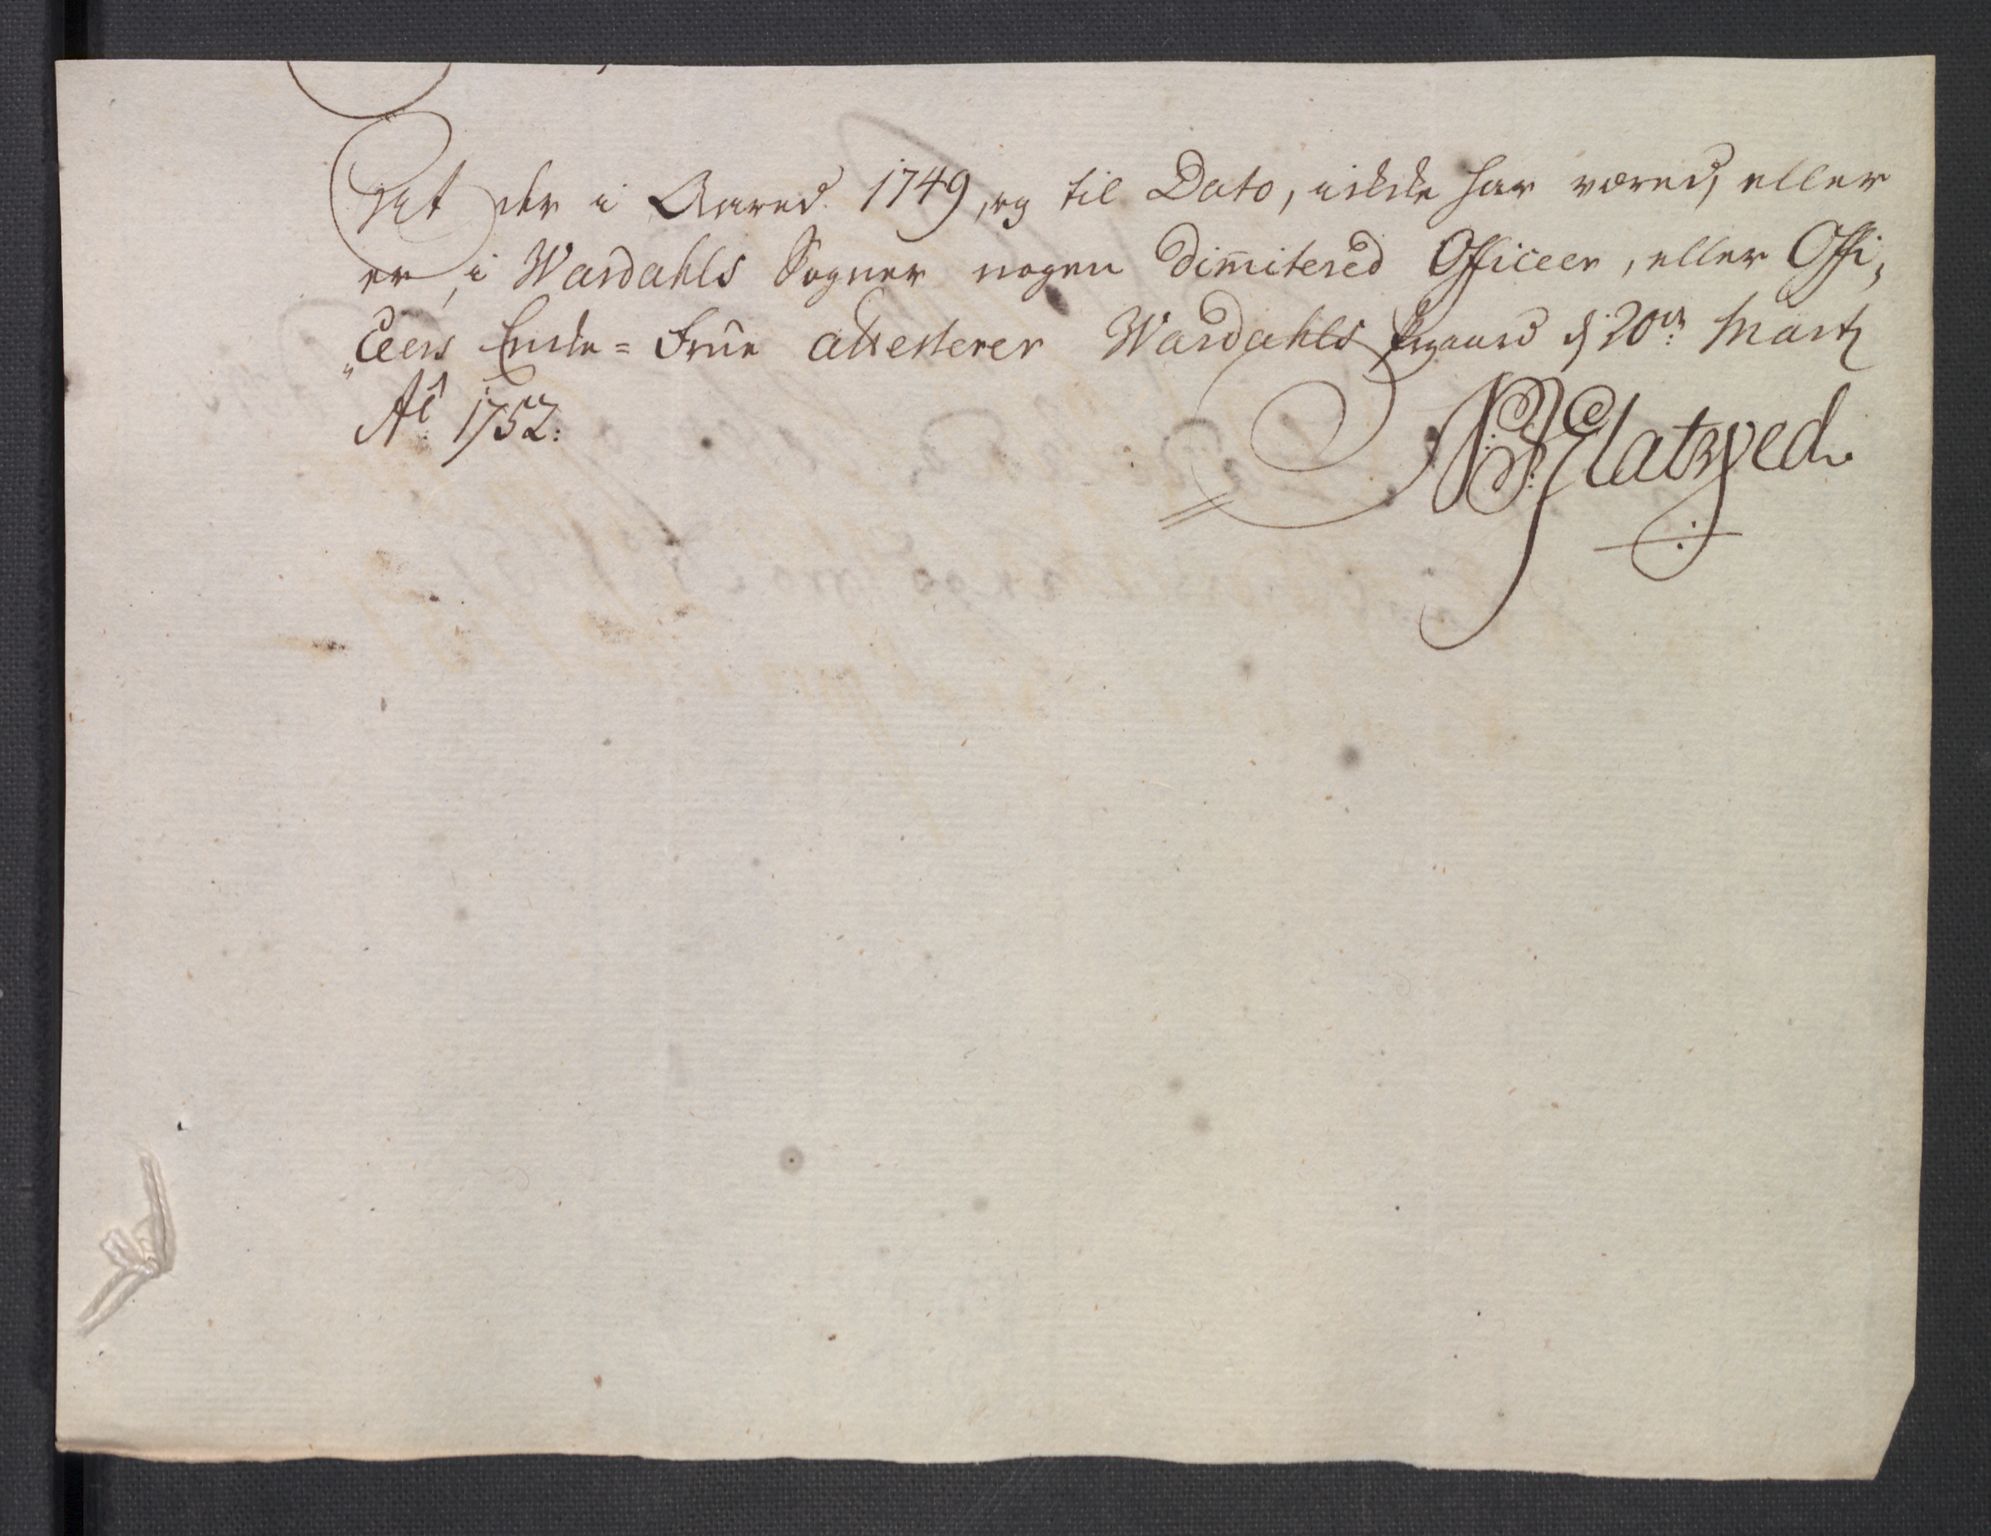 At der i Aared 1749, og til Dato, ikke har vœred, eller
er, i Wardahls Sogner nogen Dim̄itered Officeer, eller Offi„
„Ceers Encke= Frŭe attesterer Wardahls Prgaard d 20de: Marty
Ao: 1752:
N: J: Flatwed.